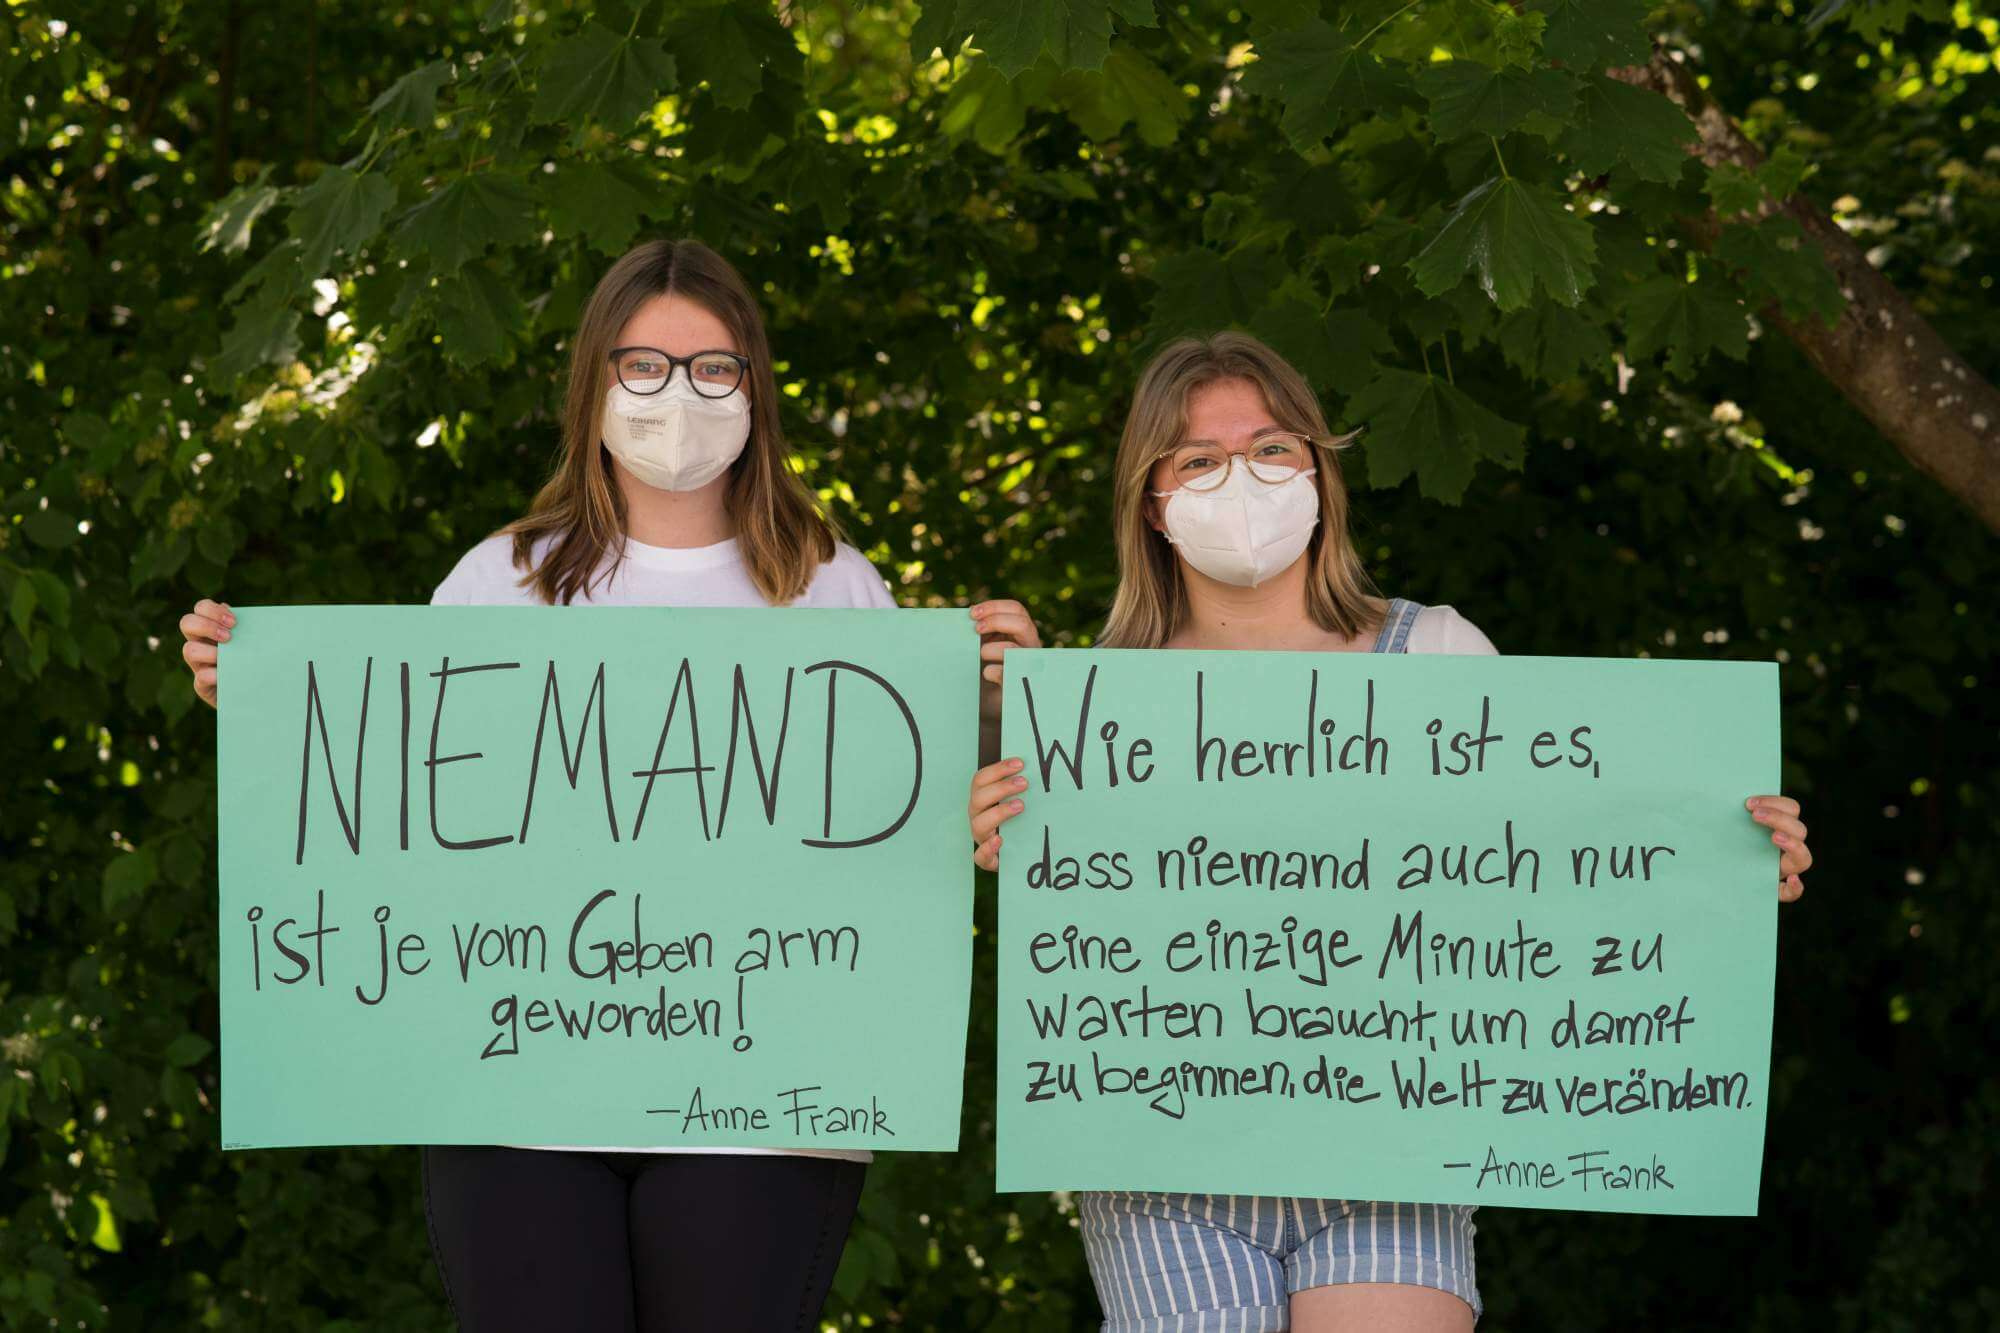 LEIHANG
NIEMAND
ist je vom Geben arm
geworden!
—Anne Frank
Wie herrlich ist es,
dass niemand auch nur
eine einzige Minute zu
warten braucht, um damit
zu beginnen, die Welt zu verändern.
—Anne Frank